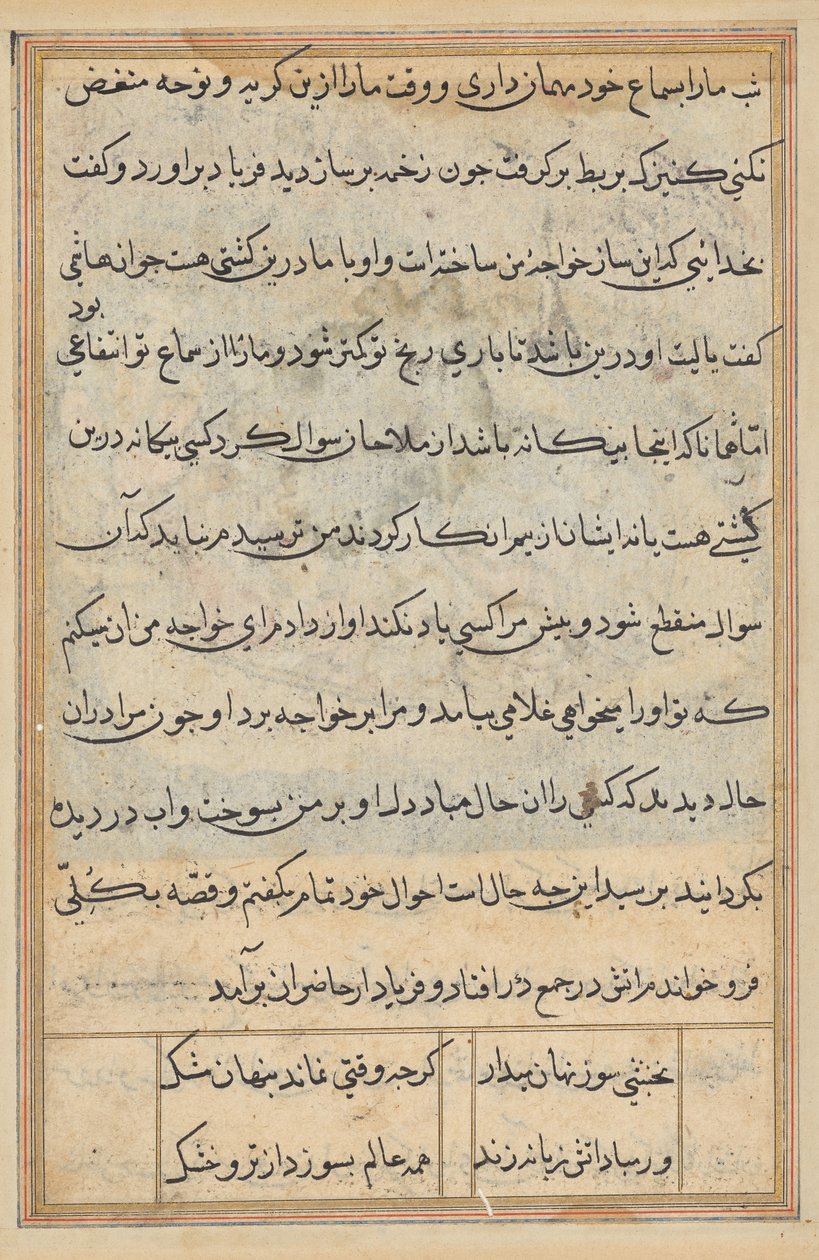 شب مارا بسماع خود مهمان داری و وقت مارا ازین کریه و نوحه منغض
نکنی کنیزک بربط برکرفت جون زخمه بر ساز دید فریاد براورد و کفت
بخدائیی که این ساز خواجهٔ من ساخته است و او با ما درین کشتی هست جوان هاشمی
بود
کفت یالیت او درین باشد تا باری رنج تو کمتر شود و مارا از سماع تو انتفاعی
امّا همانا که اینجا بیکانه باشد از ملاحان سوال کرد کسی بیکانه درین
کشتی هست یا نه ایشان از بیم انکار کردند من ترسیدم نباید که آن
سوال منقطع شود و بیش مرا کسی یاد نکند اواز دادم ای خواجه من ان میکنم
که تو اورا میخواهی غلامی بیامد و مرا بر خواجه برد او جون مرا دران
حال دید بد که کسی را ان حال مباد دل او بر من بسوخت و اب در دیده
بکردانید برسید این جه حال است احوال خود تمام بکفتم و قصّه بکُلّیّ
فرو خواندم اتش در جمع در افتاد و فریاد از حاضران برآمد
نخشبی سوز نهان میدار
کرجه وقتی نماند بنهان مشک
ور مباد اتش زبانه زند
همه عالم بسوزد از تر و خشک